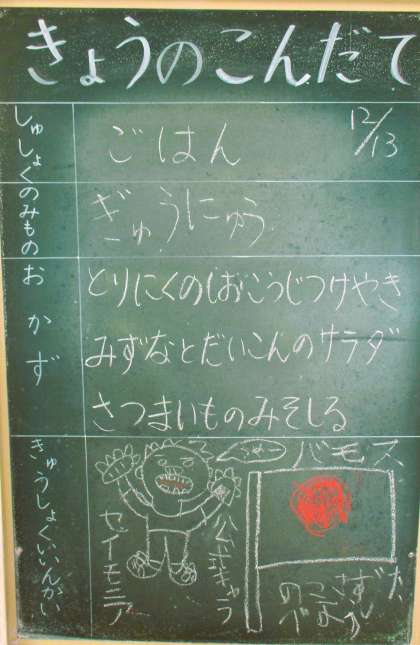 きょうのこんだて
12/13
しゅしょく
ごはん
のみもの
ぎゅうにゅう
おかず
とりにくのしおこうじつけやき
みずなとだいこんのサラダ
さつまいものみそしる
きゅうしょくいいんかい
バモス
公式キャラ
のこさず